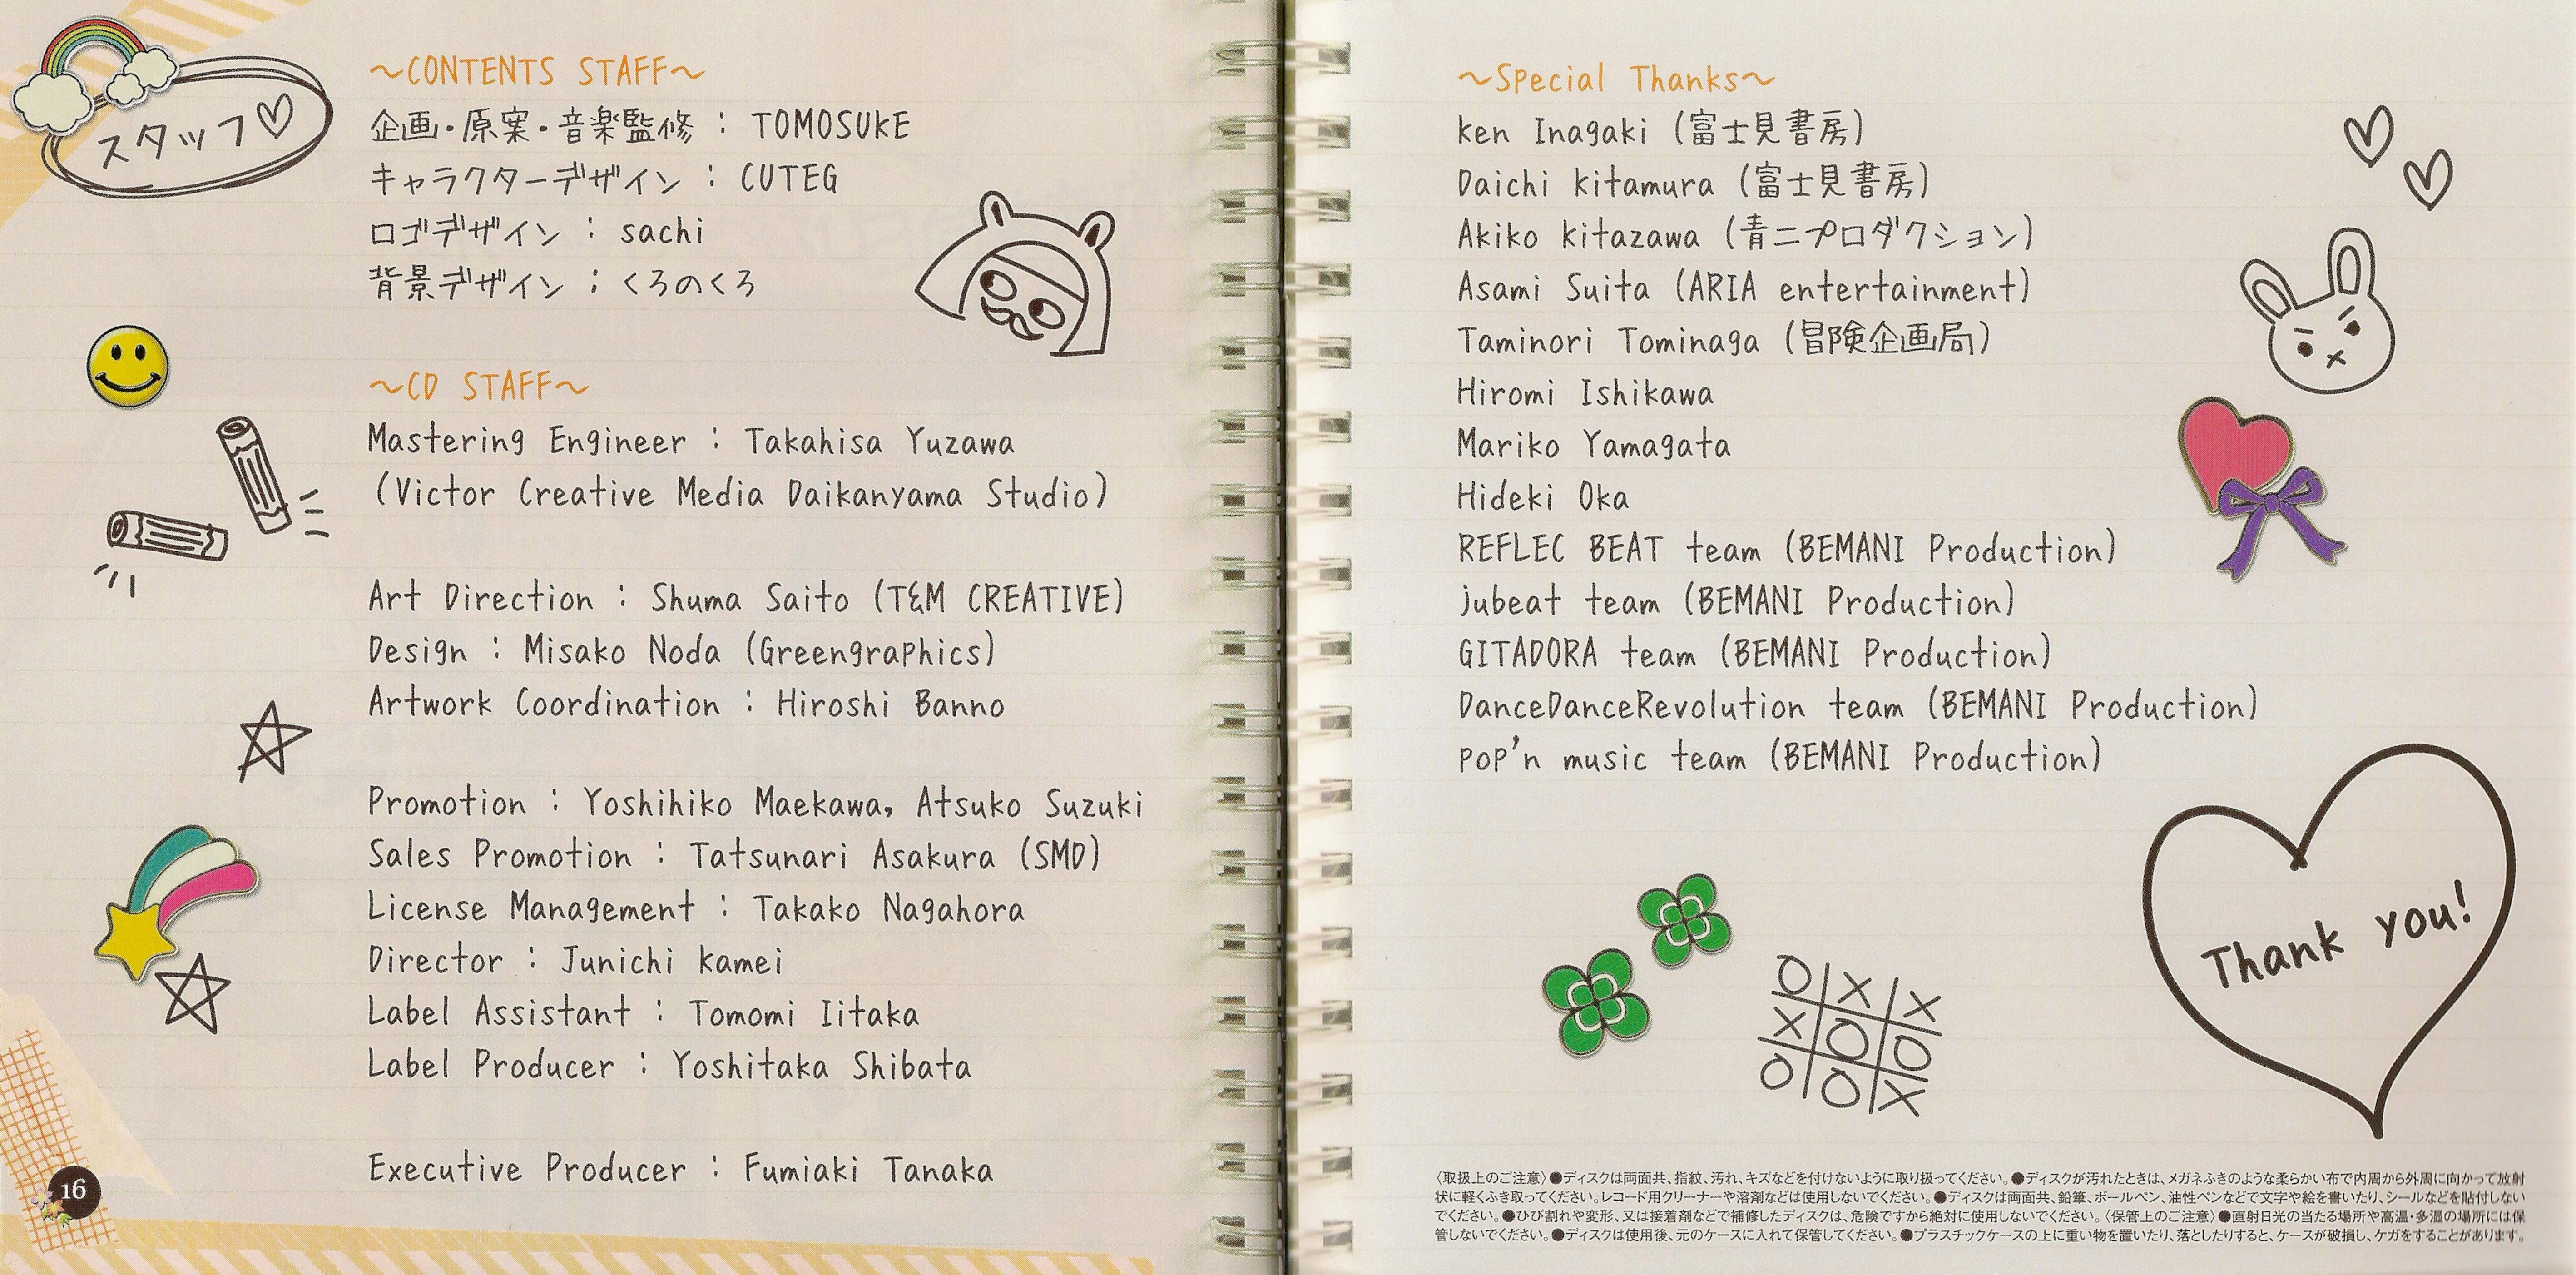 スタッフ♡
～CONTENTS STAFF～
企画・原案・音楽監修 : TOMOSUKE
キャラクターデザイン : CUTEG
ロゴデザイン : sachi
背景デザイン : くろのくろ
～CD STAFF～
Mastering Engineer : Takahisa Yuzawa
(Victor Creative Media Daikanyama Studio)
Art Direction : Shuma Saito (T&M CREATIVE)
Design : Misako Noda (Greengraphics)
Artwork Coordination : Hiroshi Banno
Promotion : Yoshihiko Maekawa, Atsuko Suzuki
Sales Promotion : Tatsunari Asakura (SMD)
License Management : Takako Nagahora
Director : Junichi Kamei
Label Assistant : Tomomi Iitaka
Label Producer : Yoshitaka Shibata
Executive Producer : Fumiaki Tanaka
16
～Special Thanks～
Ken Inagaki (富士見書房)
Daichi Kitamura (富士見書房)
Akiko Kitazawa (青二プロダクション)
Asami Suita (ARIA entertainment)
Taminori Tominaga (冒険企画局)
Hiromi Ishikawa
Mariko Yamagata
Hideki Oka
REFLEC BEAT team (BEMANI Production)
jubeat team (BEMANI Production)
GITADORA team (BEMANI Production)
DanceDanceRevolution team (BEMANI Production)
pop'n music team (BEMANI Production)
Thank you!
O X X
X O O
O O X
〈取扱上のご注意〉●ディスクは両面共、指紋、汚れ、キズなどを付けないように取り扱ってください。●ディスクが汚れたときは、メガネふきのような柔らかい布で内周から外周に向かって放射
状に軽くふき取ってください。レコード用クリーナーや溶剤などは使用しないでください。●ディスクは両面共、鉛筆、ボールペン、油性ペンなどで文字や絵を書いたり、シールなどを貼付しない
でください。●ひび割れや変形、又は接着剤などで補修したディスクは、危険ですから絶対に使用しないでください。〈保管上のご注意〉●直射日光の当たる場所や高温・多湿の場所には保
管しないでください。●ディスクは使用後、元のケースに入れて保管してください。●プラスチックケースの上に重い物を置いたり、落としたりすると、ケースが破損し、ケガをすることがあります。